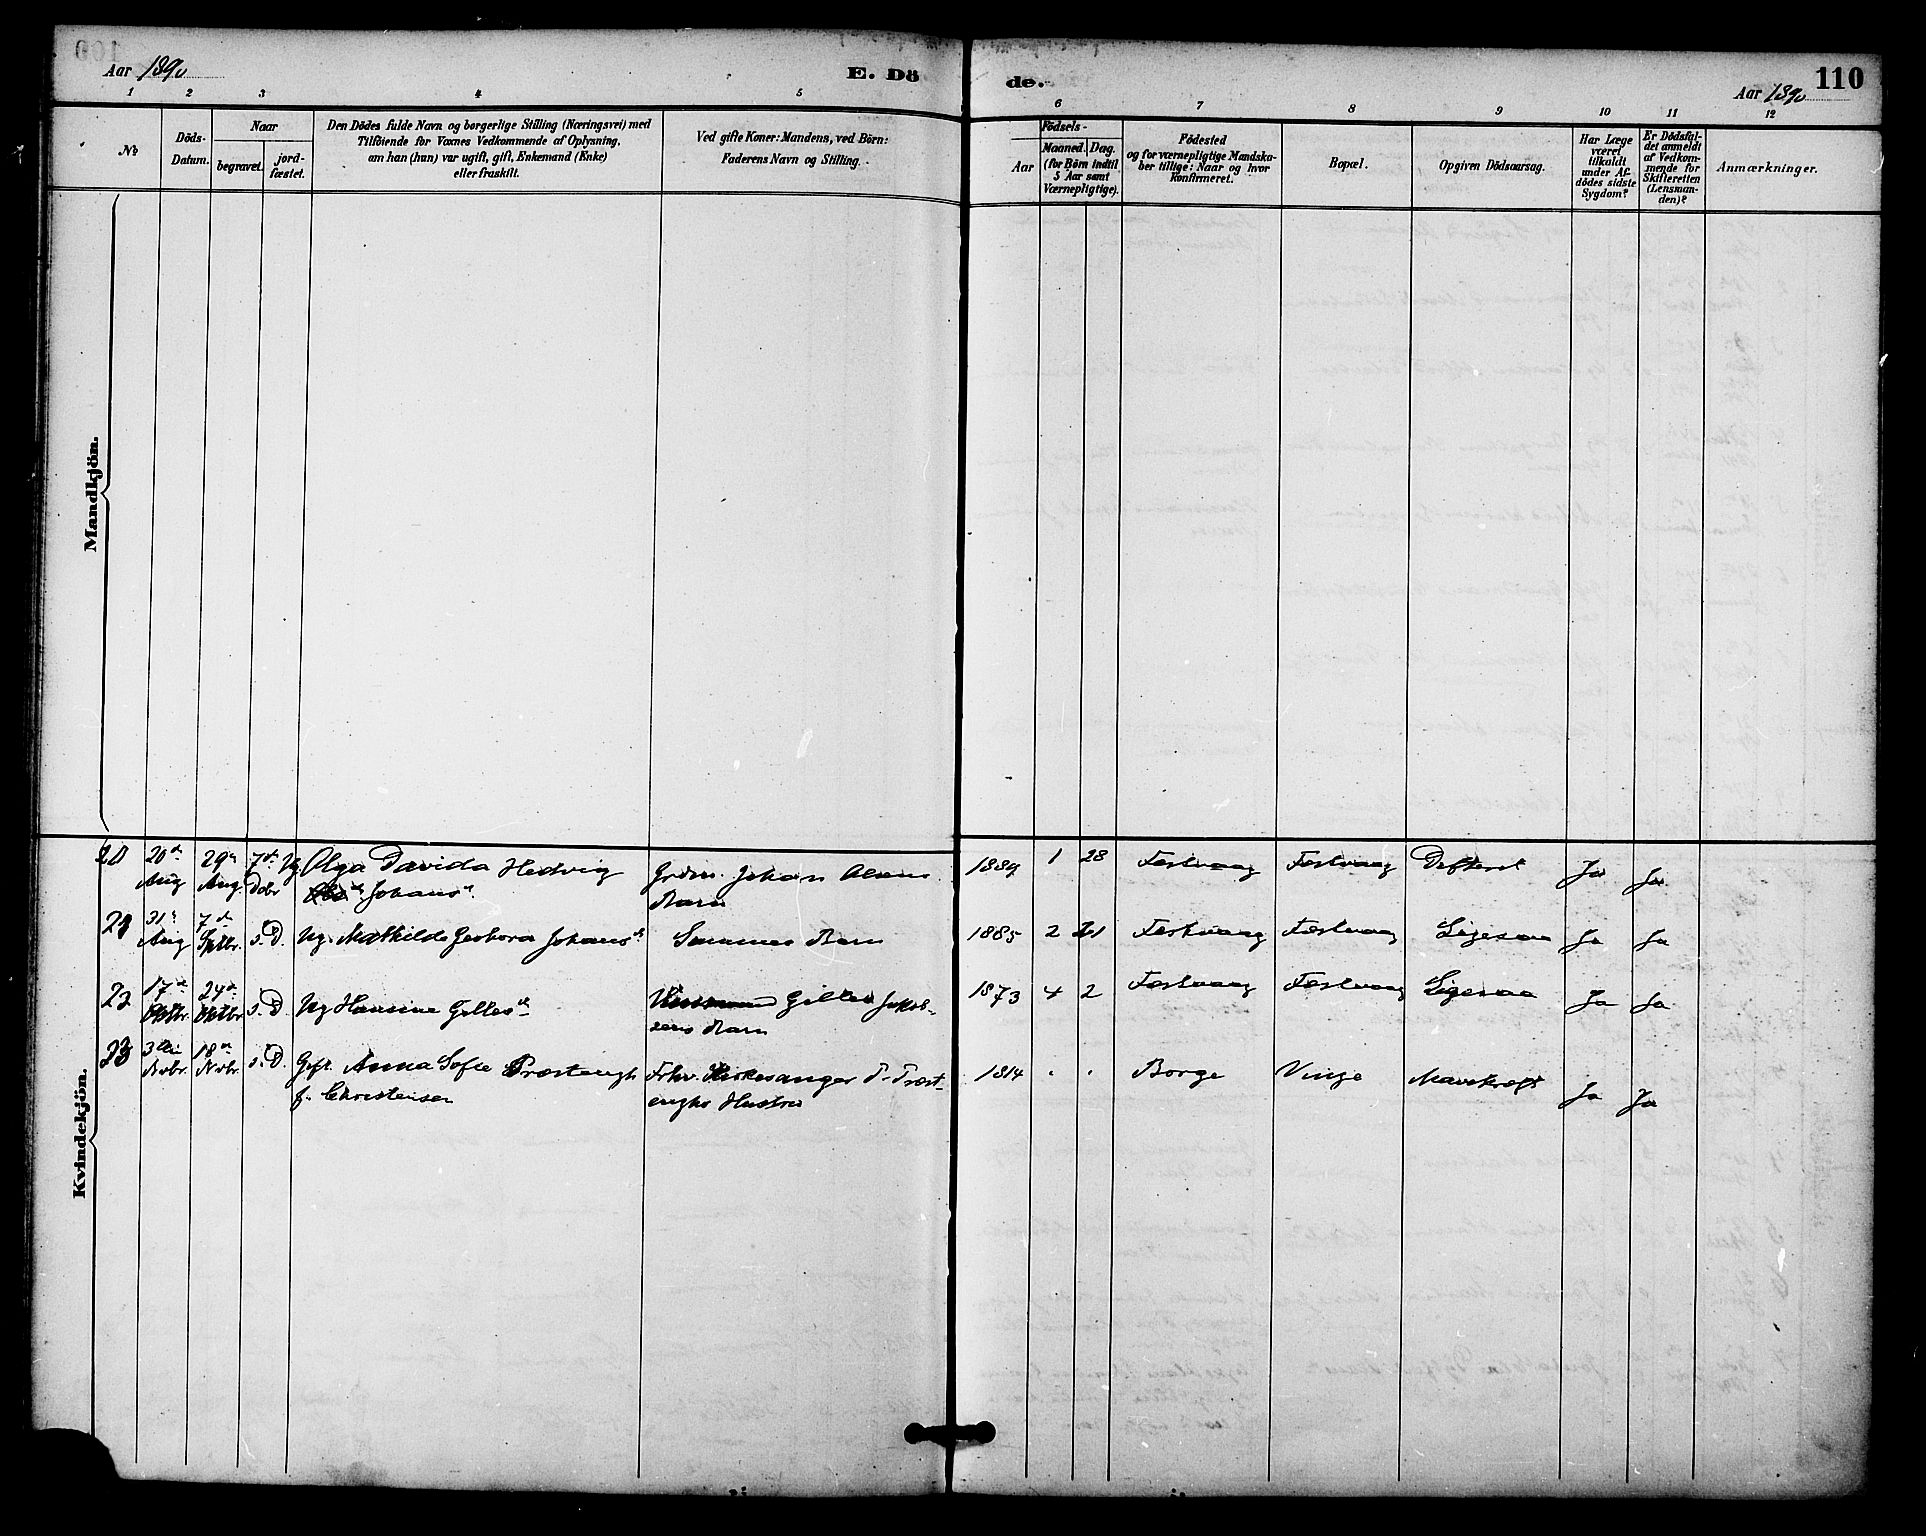 Aar 1890
E. Dö
de.
Aar 1890
110
1 2 3 4 5 6 7 8 9 10 11 12
No
Döds-Datum.
Naar
begravet.
jord-fæstet.
Den Dödes fulde Navn og borgerlige Stilling (Næringsvei) med
Tilföiende for Voxnes Vedkommende af Oplysning,
om han (hun) var ugift, gift, Enkemand (Enke)
eller fraskilt.
Ved gifte Koner: Mandens, ved Börn:
Faderens Navn og Stilling.
Födsels-
Aar
Maaned.
Dag.
(for Börn indtil
5 Aar samt
Værnepligtige).
Födested
og for værnepligtige Mandska-
ber tillige: Naar og hvor
konfirmeret.
Bopæl.
Opgiven Dödsaarsag.
Har Læge
været
tilkaldt
under Af-
dödes sidste
Sygdom?
Er Dödsfal-
det anmeldt
af Vedkom-
mende for
Skifteretten
(Lensman-
den)?
Anmærkninger.
Mandkjön.
Kvindekjön.
20 20de Aug 29de Aug 7de Dcbr Ug Olga Davida Hedvig Johansd. Grdm. Johan Barn 1889 1 28 Festvaag Festvaag Defterit Ja Ja
21 31te Aug 7de Sptbr. s. D. Ug. Mathilde Johansd. Sammes Barn 1885 2 21 Festvaag Festvaag Ligesaa Ja Ja
22 17de Oktbr. 24de Oktbr. s. D. Ug Hansine Giltesd. Giltes Jakob-
sens Barn 1873 4 2 Festvaag Festvaag Ligesaa Ja Ja
23 3die Novbr. 18de Novbr. s. D. Gift Anna Sofie Præstengh Fhv. Kirkesanger P. Præst-
f. Christensen enghs Hustru 1814 Borge Vinje Mavekræft Ja Ja